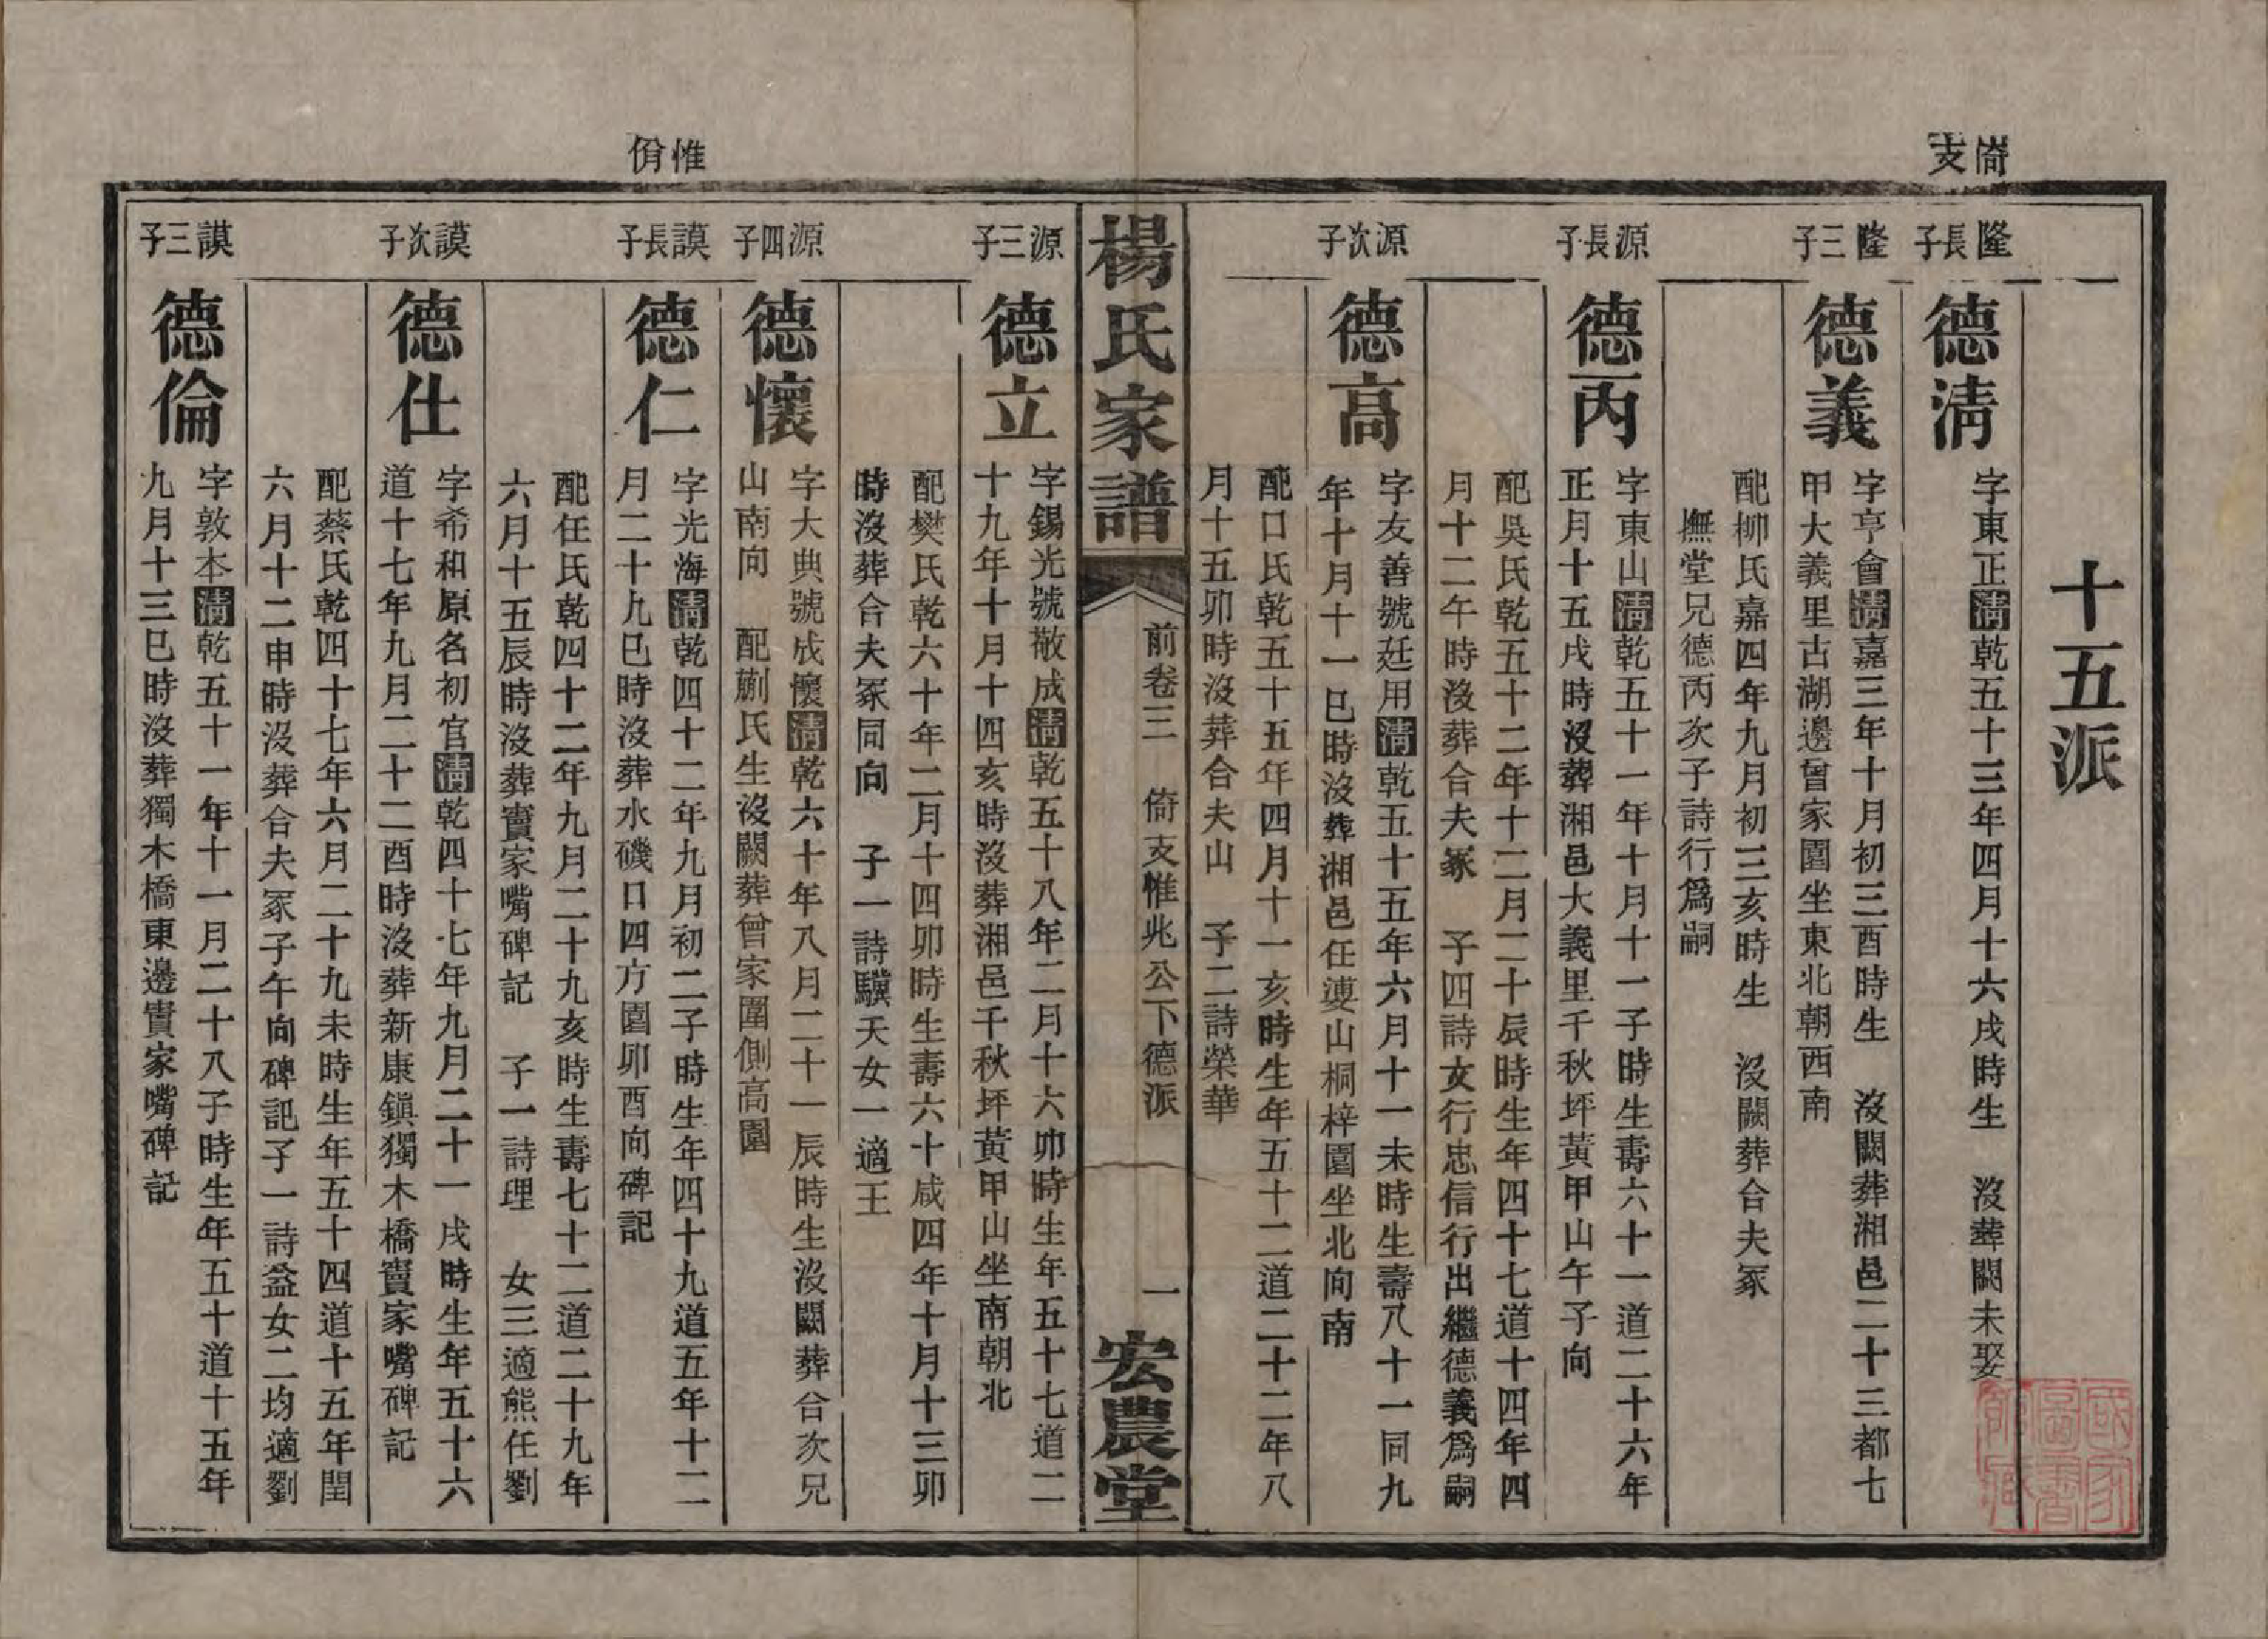 十五派
隆長子
德清
字東正清乾五十三年四月十六戌時生 沒葬闕未娶
隆三子
德義
字亨會清嘉三年十月初三酉時生 沒闕葬湘邑二十三都七
甲大義里古湖邊曾家園坐東北朝西南
配柳氏嘉四年九月初三亥時生 沒闕葬合夫冢
撫堂兄德丙次子詩行爲嗣
源長子
德丙
字東山清乾五十一年十月十一子時生壽六十一道二十六年
正月十五戌時沒葬湘邑大義里千秋坪黃甲山午子向
配吳氏乾五十二年十二月二十辰時生年四十七道十四年四
月十二午時沒葬合夫冢 子四詩文行忠信行出繼德義爲嗣
源次子
德高
字友善號廷用清乾五十五年六月十一未時生壽八十一同九
年十月十一巳時沒葬湘邑任婆山桐梓園坐北向南
配口氏乾五十五年四月十一亥時生年五十二道二十二年八
月十五卯時沒葬合夫山 子二詩榮華
楊氏家譜
前卷三 倚支惟兆公下德派
一
宏農堂
源三子
德立
字錫光號敬成清乾五十八年二月十六卯時生年五十七道二
十九年十月十四亥時沒葬湘邑千秋坪黃甲山坐南朝北
配樊氏乾六十年二月十四卯時生壽六十咸四年十月十三卯
時沒葬合夫冢同向 子一詩驥夭女一適王
源四子
德懷
字大典號成懷清乾六十年八月二十一辰時生沒闕葬合次兄
山南向 配蒯氏生沒闕葬曾家園側高園
惟佾
謨長子
德仁
字光海清乾四十二年九月初二子時生年四十九道五年十二
月二十九巳時沒葬水磯口四方園卯酉向碑記
配任氏乾四十二年九月二十九亥時生壽七十二道二十九年
六月十五辰時沒葬竇家嘴碑記 子一詩理 女三適熊任劉
謨次子
德仕
字希和原名初官清乾四十七年九月二十一戌時生年五十六
道十七年九月二十二酉時沒葬新康鎮獨木橋竇家嘴碑記
配蔡氏乾四十七年六月二十九未時生年五十四道十五年閏
六月十二申時沒葬合夫冢子午向碑記子一詩益女二均適劉
謨三子
德倫
字敦本清乾五十一年十一月二十八子時生年五十道十五年
九月十三巳時沒葬獨木橋東邊竇家嘴碑記